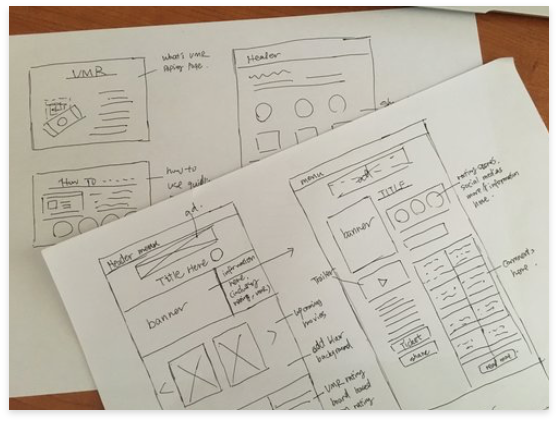 VMR
what's VMR
page.
Header
How To
how-to
use guide
ad.
Header menu
Title Here
information
here
(including
rating, 
banner
Upcoming
movies
add blur
background
VMR rating
board, based
on rating
menu
ad
TITLE
banner
rating scores,
social medias
more & information
here.
Trailer
Ticket
share
Comments
here
read more